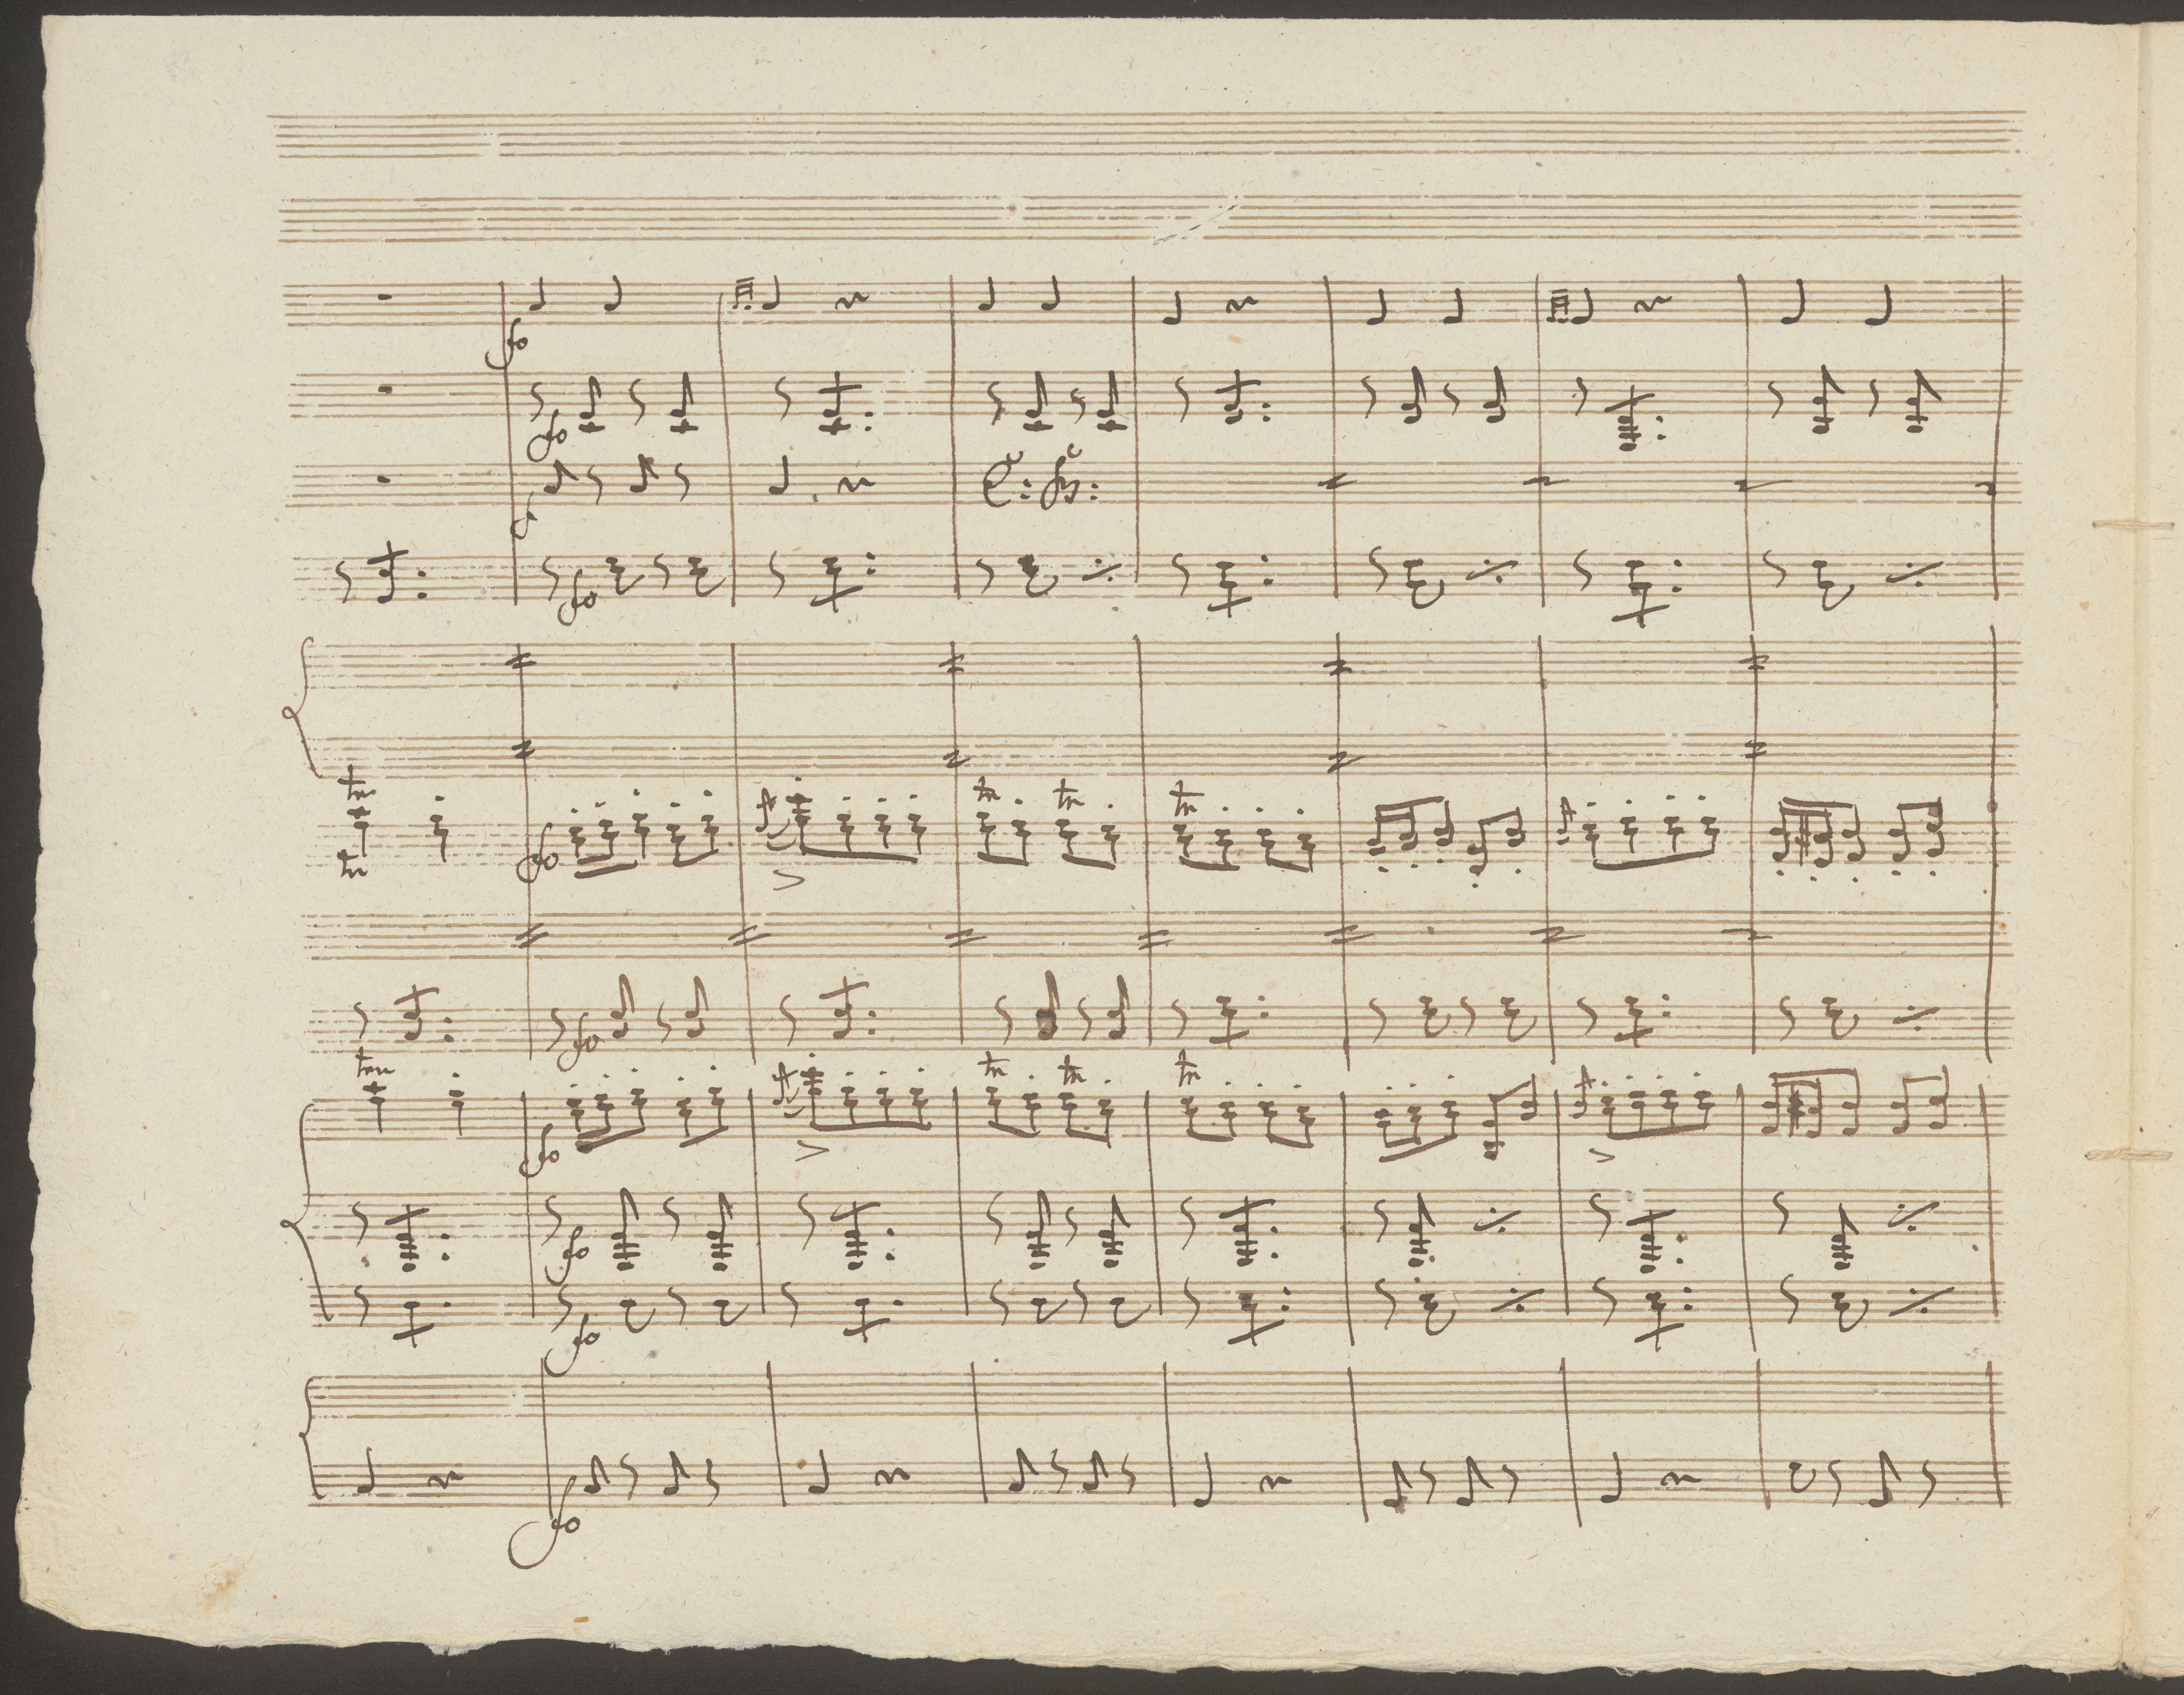 fo
fo
f
fo
tr tr tr tr
tr
fo
fo
tr tr tr tr
fo
fo
fo
fo